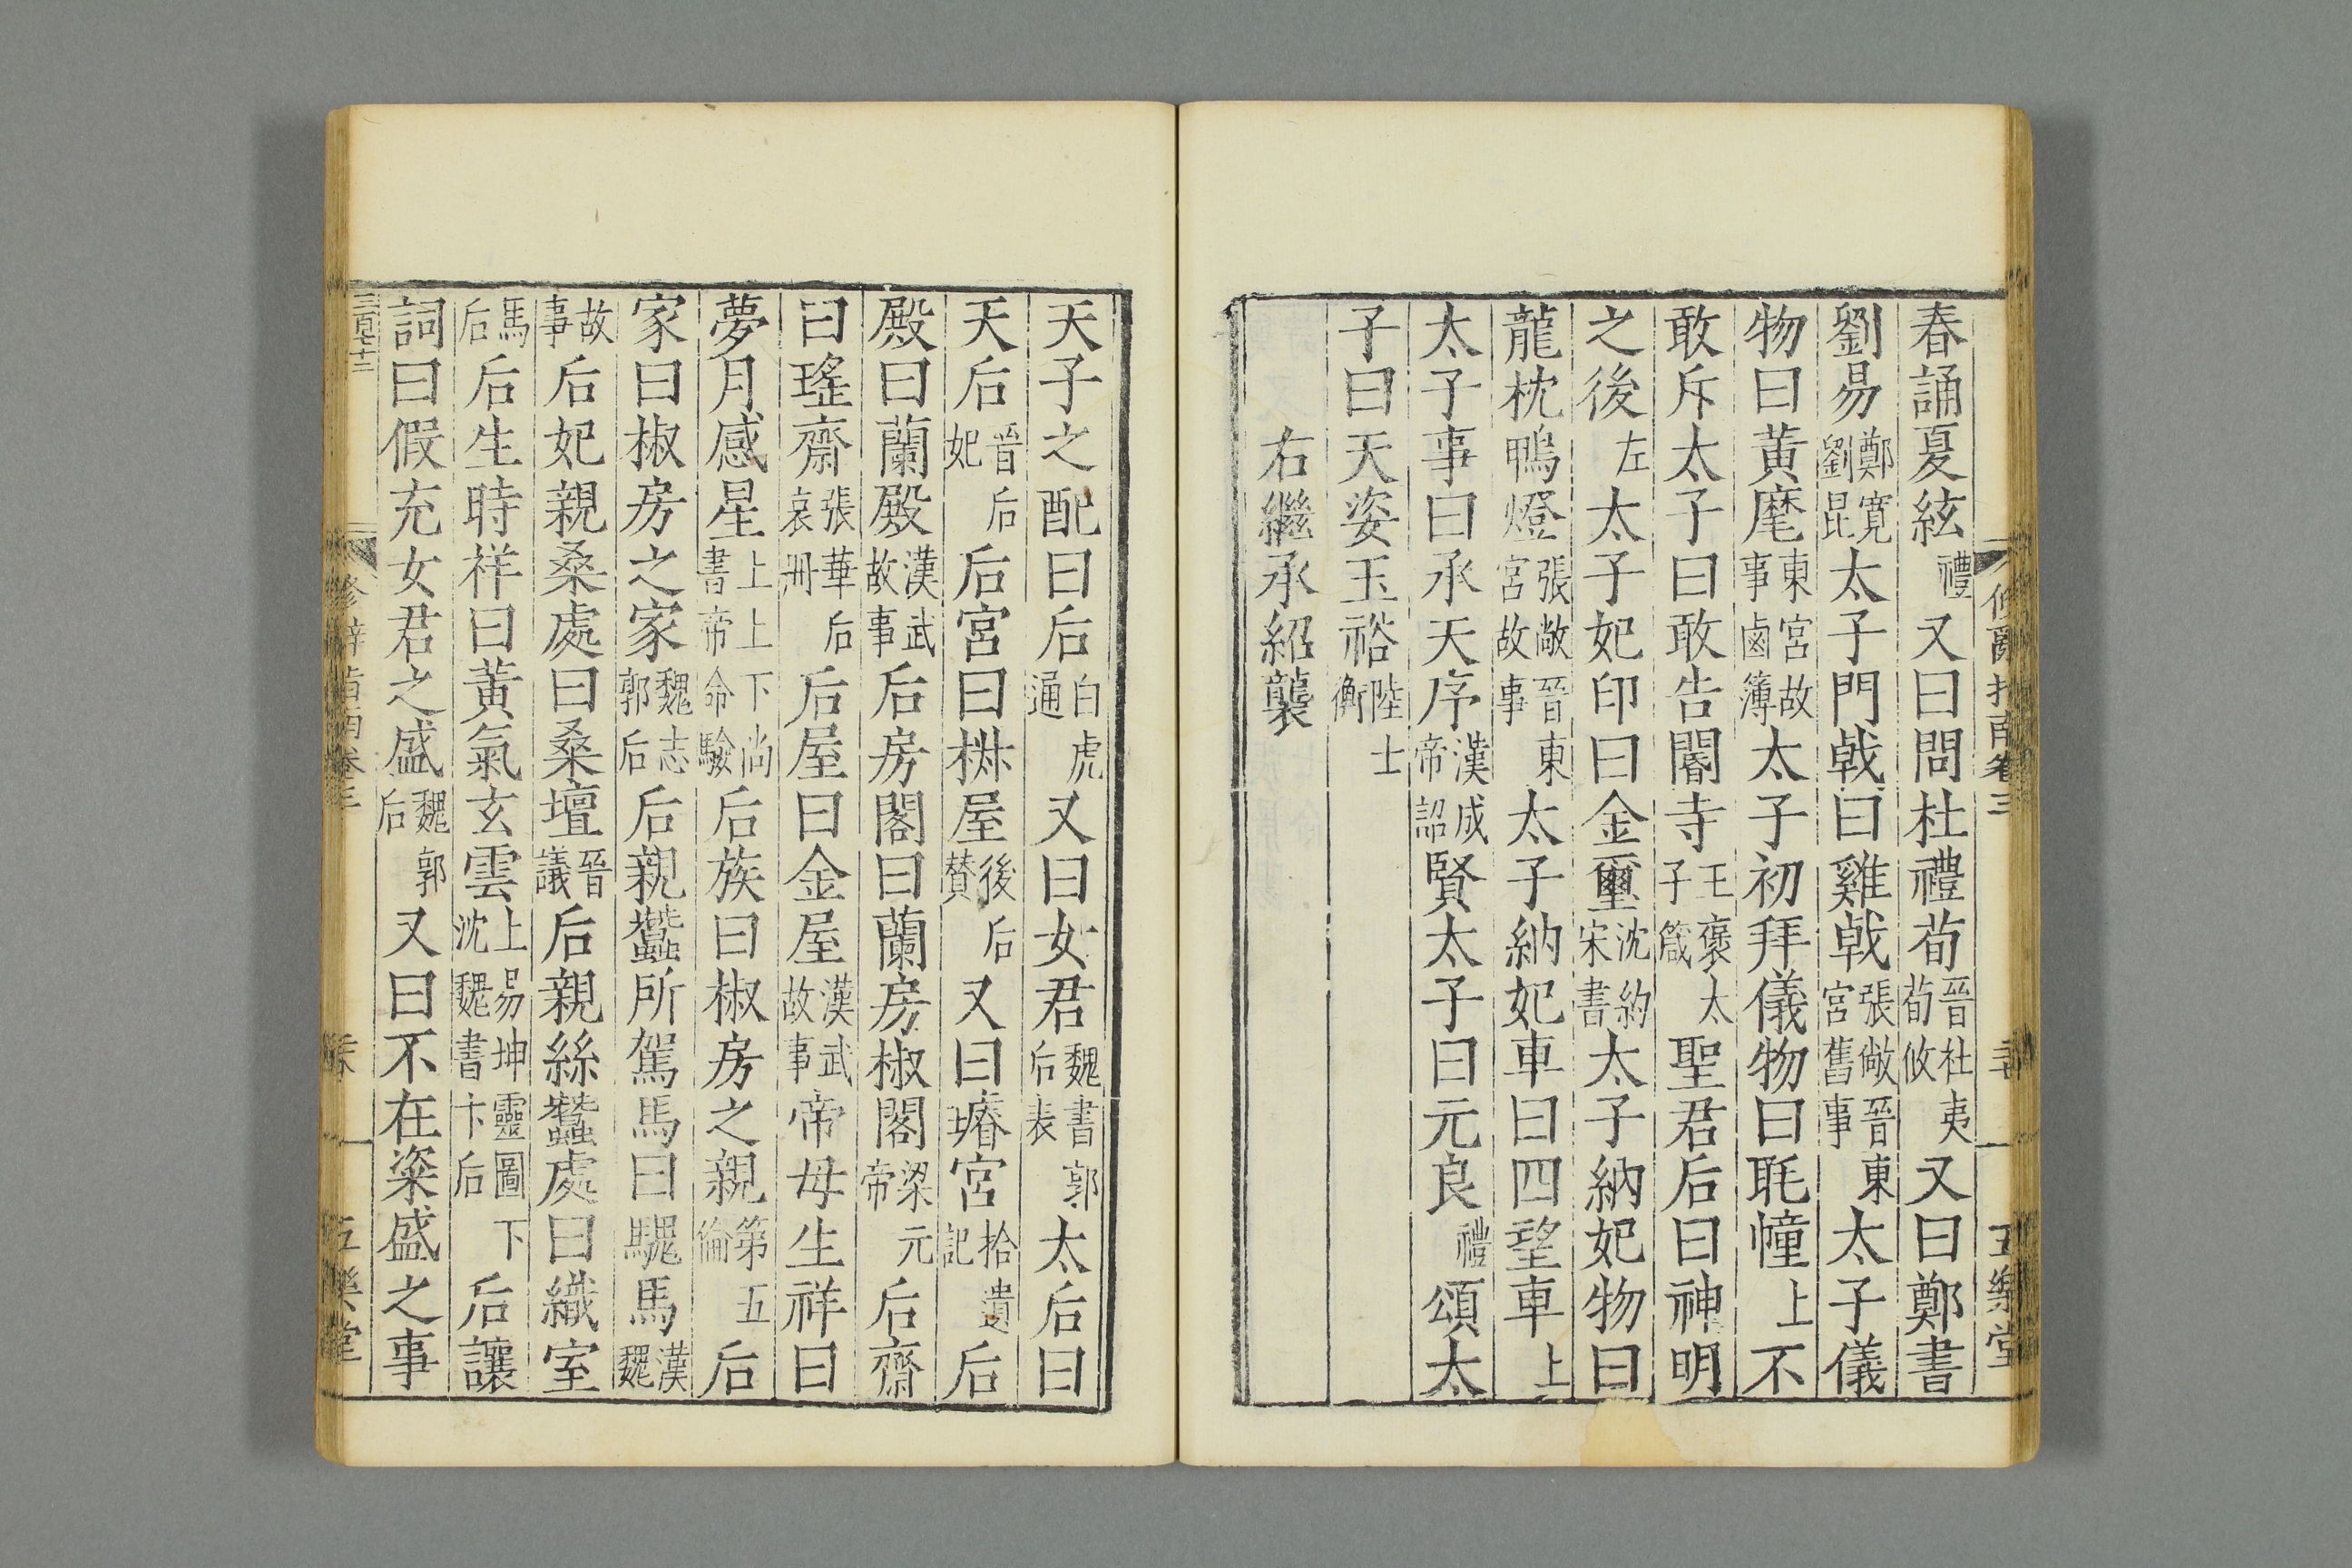 春誦夏絃禮又曰問杜禮荀晉杜夷荀攸又曰鄭書
劉易鄭寛劉昆太子門戟曰雞戟張敞晉東宮舊事太子儀
物曰黃麾東宮故事鹵簿太子初拜儀物曰毦幢上不
敢斥太子曰敢告閽寺王褒太子箴聖君后曰神明
之後左太子妃印曰金璽沈約宋書太子納妃物曰
龍枕鴨燈張敞晉東宮故事太子納妃車曰四望車上
太子事曰承天序漢成帝詔賢太子曰元良禮頌太
子曰天姿玉裕陸士衡
右繼承紹襲
修辭指南卷三
五樂堂
天子之配曰后白虎通又曰女君魏書郭后表太后曰
天后晉后妃后宮曰椒屋後后賛又曰瑃宮拾遺記后
殿曰蘭殿漢武故事后房閣曰蘭房椒閣梁元帝后齋
曰瑤齋張華后哀冊后屋曰金屋漢武故事帝母生祥曰
夢月感星上上下尚書帝命驗后族曰椒房之親第五倫后
家曰椒房之家魏志郭后后親蠶所駕馬曰騩馬漢魏
故事后妃親桑處曰桑壇晉議后親絲蠶處曰織室
馬后后生時祥曰黃氣玄雲上易坤靈圖下沈魏書卞后后讓
詞曰假充女君之盛魏郭后又曰不在粢盛之事
修辭指南卷三
五樂堂